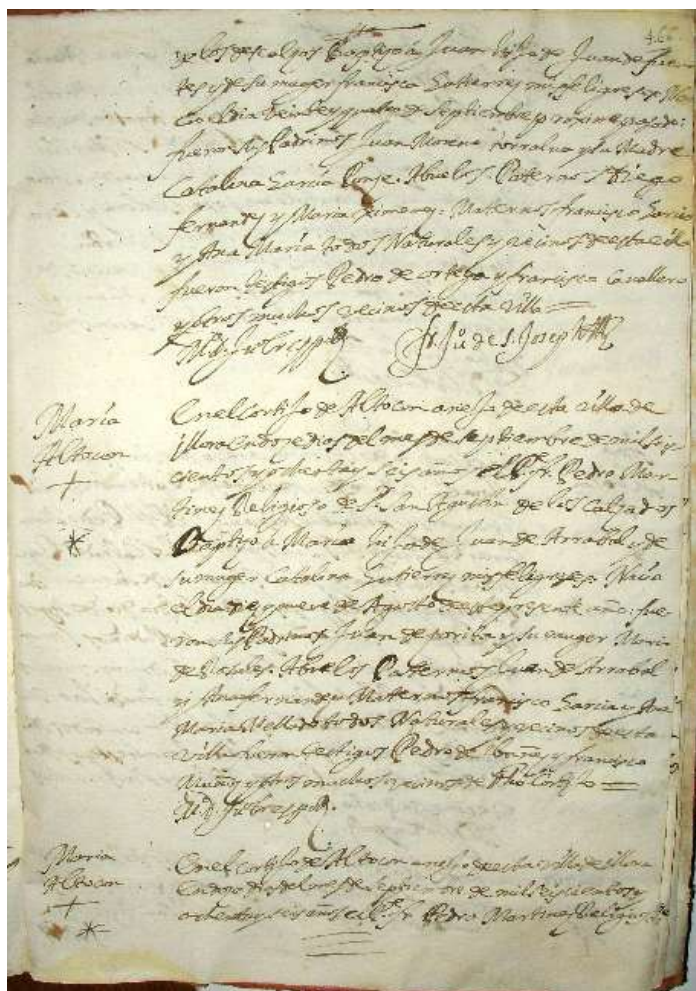 de los descalços Baptiço a Juan hijo de Juan de fuen
tes y de su muger francisca Gutierrez mis feligreses Na
cio el dia veinte y quatro de septiembre proximo pasado:
fueron sus Padrinos Juan Moreno torralva y su Madre
Catalina Garcia Conje. Abuelos Paternos Diego
fernandez y Maria Ximenez: Maternos francisco Garcia
y Ana Maria todos Naturales y vecinos de esta villa
fueron testigos Pedro de ortega y francisco Cavallero
y otros muchos vecinos de esta villa
fr. Ju de S. Joseph
Maria
Altocon
En el Cortijo de Altocon anejo de esta villa de
illora en doze dias del mes de septiembre de mil seis
cientos y ochenta y seis años el P. fr. Pedro Mar
tinez Religioso de S. San Agustin de los Calzados
Baptiço a Maria hija de Juan de Arrabal y de
su muger Catalina Gutierrez mis feligreses. Nacio
el dia y nueve de Agosto de este presente año: fue
ron sus Padrinos Juan de porita y su muger Maria
de Rosales. Abuelos Paternos Juan de Arrabal
y Ana fernandez Maternos francisco Garcia y Ana
Maria Mellado todos Naturales y vecinos de esta
villa fueron testigos Pedro de y francisco
Muñoz y otros muchos vecinos de dho Cortijo
Maria
Altocon
En el cortijo de Altocon anejo de esta villa de illora
en doze dias del mes de septiembre de mil seiscientos y
ochenta y seis años el P. fr. Pedro Martinez Religioso de